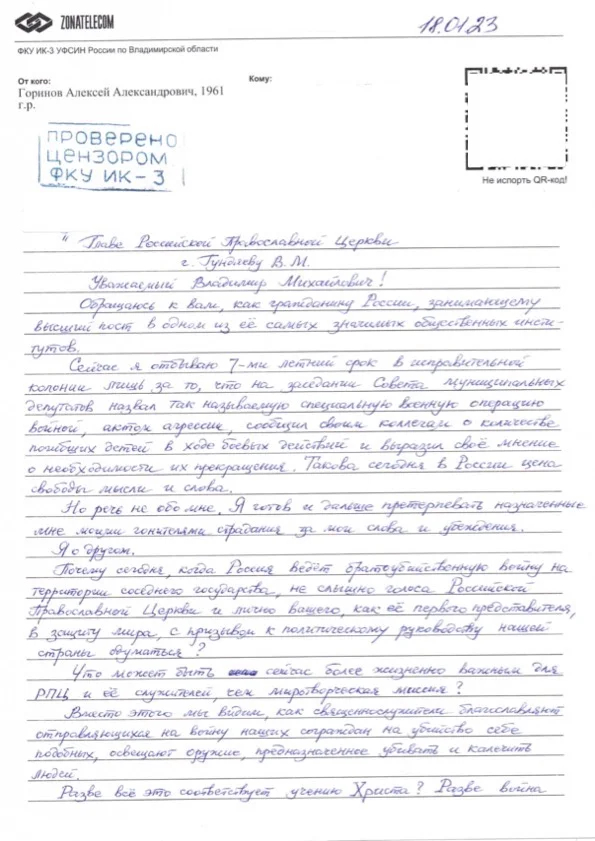 ZONATELECOM
18.01.23
ФКУ ИК-3 УФСИН России по Владимирской области
От кого:
Кому:
Горинов Алексей Александрович, 1961
г.р.
ПРОВЕРЕНО
ЦЕНЗОРОМ
ФКУ ИК-3
Не испорть QR-код!
" Главе Российской Православной Церкви
г. Гундяеву В.М.
Уважаемый Владимир Михайлович!
Обращаюсь к вам, как гражданину России, занимающему
высший пост в одном из её самых значимых общественных инсти-
тутов.
Сейчас я отбываю 7-ми летний срок в исправительной
колонии лишь за то, что на заседании Совета муниципальных
депутатов назвал так называемую специальную военную операцию
войной, актом агрессии, сообщил своим коллегам о количестве
погибших детей в ходе боевых действий и выразил своё мнение
о необходимости их прекращения. Такова сегодня в России цена
свободы мысли и слова.
Но речь не обо мне. Я готов и дальше претерпевать назначенные
мне моими гонителями страдания за мои слова и убеждения.
Я о другом.
Почему сегодня, когда Россия ведёт братоубийственную войну на
территории соседнего государства, не слышно голоса Российской
Православной Церкви и лично вашего, как её первого представителя,
в защиту мира, с призывом к политическому руководству нашей
страны одуматься?
Что может быть сейчас более жизненно важным для
РПЦ и её служителей, чем миротворческая миссия?
Вместо этого мы видим, как священнослужители благославляют
отправляющихся на войну наших сограждан на убийство себе
подобных, освещают оружие, предназначенное убивать и калечить
людей.
Разве всё это соответствует учению Христа? Разве война